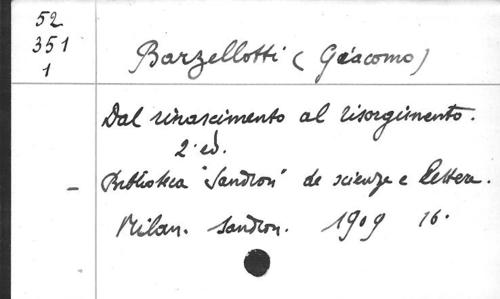 52
351
1
Barzellotti (Giacomo)
Dal rinascimento al risorgimento.
2e ed.
– Biblioteca "Sandron" de scienze e lettere.
Milan. Sandron. 1909 16.